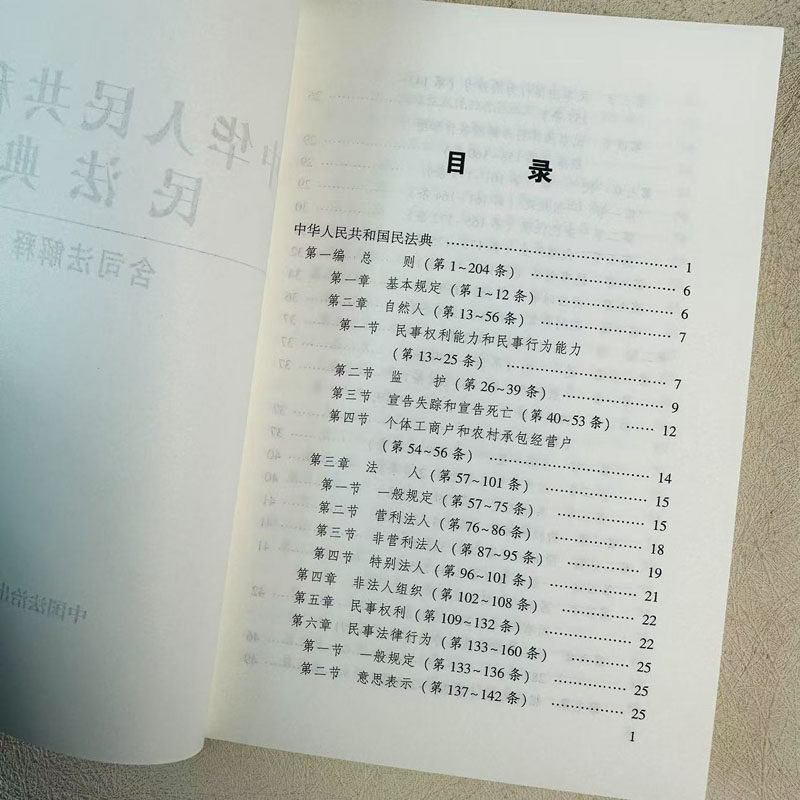 中华人民共和
民法典
含司法解释
中国法治出
目 录
中华人民共和国民法典 …………………… 1
第一编 总 则（第1~204条） …………………… 6
第一章 基本规定（第1~12条） …………………… 6
第二章 自然人（第13~56条） …………………… 7
第一节 民事权利能力和民事行为能力
（第13~25条） …………………… 7
第二节 监 护（第26~39条） …………………… 9
第三节 宣告失踪和宣告死亡（第40~53条） ………… 12
第四节 个体工商户和农村承包经营户
（第54~56条） …………………… 14
第三章 法 人（第57~101条） …………………… 15
第一节 一般规定（第57~75条） …………………… 15
第二节 营利法人（第76~86条） …………………… 18
第三节 非营利法人（第87~95条） …………………… 19
第四节 特别法人（第96~101条） …………………… 21
第四章 非法人组织（第102~108条） …………………… 22
第五章 民事权利（第109~132条） …………………… 22
第六章 民事法律行为（第133~160条） …………………… 25
第一节 一般规定（第133~136条） …………………… 25
第二节 意思表示（第137~142条） …………………… 25
1